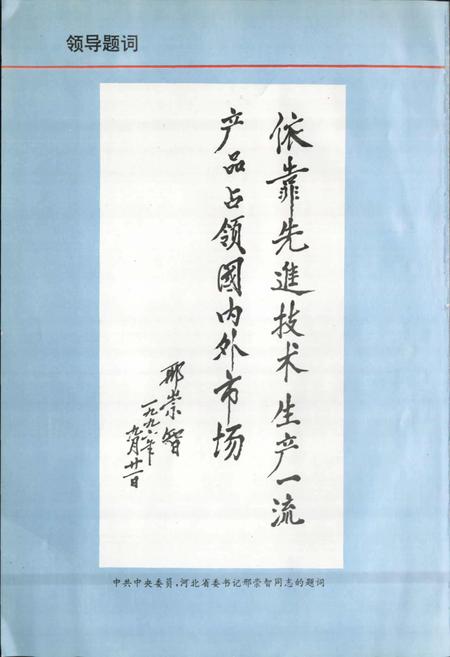 领导题词
依靠先進技术生产一流
产品占领國内外市场
邢崇智
一九九六年
九月廿一日
中共中央委员，河北省委书记邢崇智同志的题词